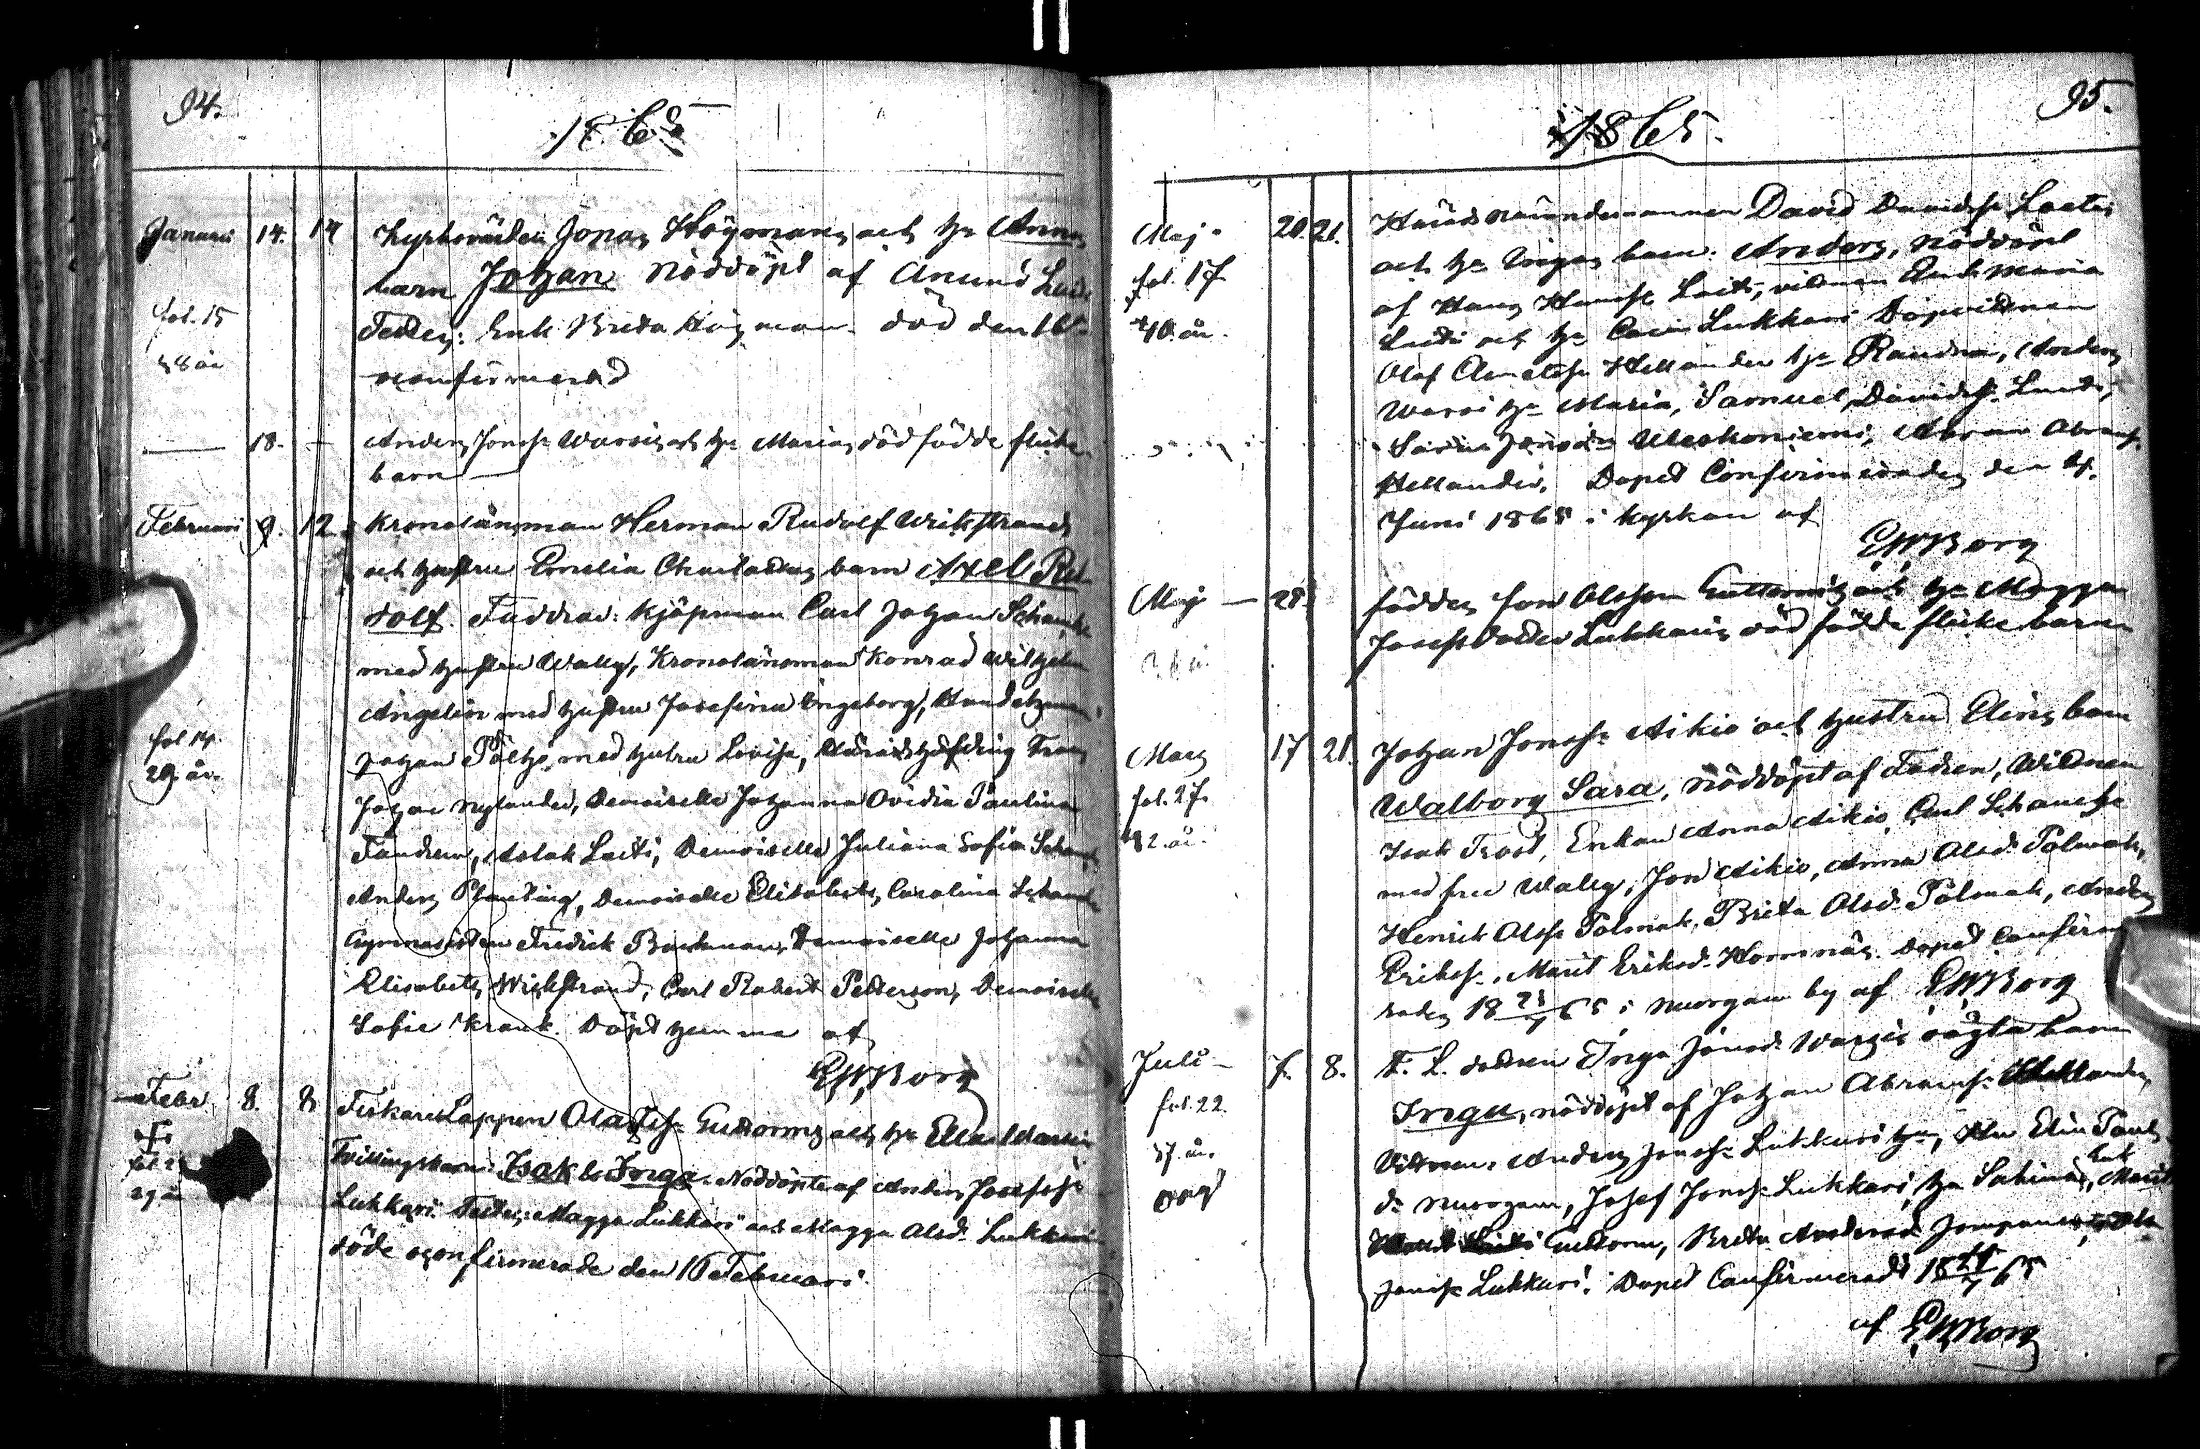 94.
1865
Januari 14. 14 Kyrkovärden Jonas Högmans och h:s Annas
barn Johan nöddöpt af Anund
fol. 15 Testes: Enk. Brita Högman. död den 16
38 år oconfirmerad
18. Anders Jonss. Warsis och h:s Marias död födde flicke
barn
Februari 9. 12. Kronolänsman Herman Rudolf Wickstrands
och hustru Emelia Charlottas barn Axel Ru
dolf. Faddrar: Kjöpman Carl Johan Schancke
med hustru Wally, Kronolänsman Konrad Wilhelm
Angelin med hustru Josefina Ingeborg, Handelsman
fol 14. Johan Pöltzo med hustru Lovisa, Häradshöfding Frans
29 år. Johan Nylander, Demoiselle Johanna Ovidia Paulina
Fandrem, Aslak Laiti, Demoiselle Juliana Sofia Schanck
Anders Planting, Demoiselle Elisabeth Carolina Schanck
Gymnasisten Fredrik Backman, Demoiselle Johanna
Elisabeth Wickstrand, Carl Robert Petterson, Demoiselle
Sofie Krank. Döpt hemma af
EWBorg
Febr. 8. 8 Fiskare Lappen Olas Guttorms och h:s Ellas
fol 2 Tvillingbarn: Isak & Inga. Nöddöpte af Anders Josefss.
29 år Lukkari. Testes: Magga Lukkari och Magga Olsd. Lukkari
döde oconfirmerade den 16 Februari.
95.
1865.
Maj 20. 21. Häradsnämndemannen David Davidss. Laitis
fol. 17 och h:s Ingas barn: Anders, nöddöpt
af Hans Hanss. Laiti, vittnen Enk Maria
40. år. Laiti och h:s Lukkari Dopvittnen
Olof Hellander h:s Raudna, Anders
Warsi h:s Maria, Samuel Davidss.
Jonsd. Utsakoniemi, Abram Abramss.
Hellander. Dopet Confirmerades den 4.
Juni 1865 i kyrkan af
EWBorg
Maj 28. föddes Jon Olssen Guttorms och h:s Maggas
Josefsdotter Lukkaris död födde flicke barn
Mars 17 21. Johan Jonss. Aikio och hustru Elins barn
fol. 27. Walborg Sara, nöddöpt af Fadren, Vittnen
42. år. Isak Trost, Enkan Anna Aikio, Carl Schancke
med fru Wally, Jon Aikio, Anna Olsd. Polmak,
Henrik Olss. Polmak, Brita Olsd. Polmak, Anders
Erikss., Marit Eriksd. Hornnäs. Dopet Confirme
rades 18 65 i Nuorgam by af EWBorg
Juli 7. 8. F. L. dottren Inga Jonsd. Warsis oägta barn
fol. 22. Inga, nöddöpt af Johan Abramss. Hellander,
37. år. Vittnen: Anders Jonss. Lukkari h:s, Elin Pauls
oägt d:r Nuorgam, Josef Jonss. Lukkari h:s Sabina, Enk Marit
Guttorm, Brita Andersd. Jompanen, Ola
Jonss. Lukkari. Dopet Confirmeradt 18 65
af EWBorg